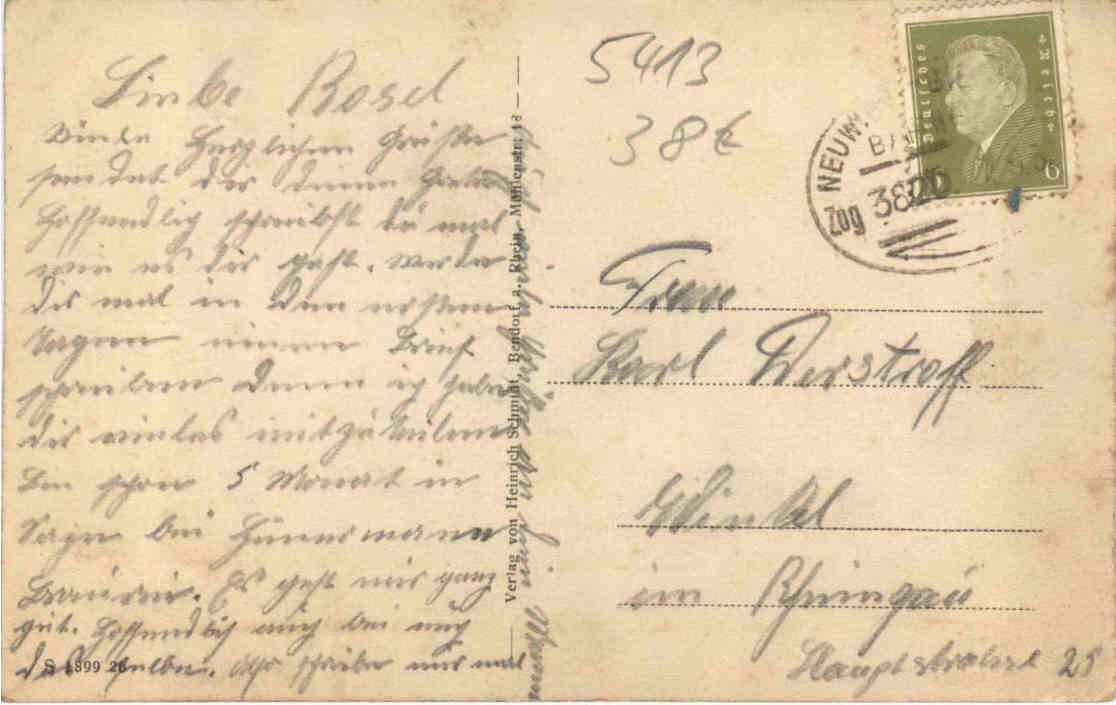 Liebe Rosel
Viele herzlichen Grüße
sendet dir deine
Hoffendlich schreibst du mal
wie es dir geht. werde
dir mal in den ersten
Tagen einen Brief
schreiben denn ich habe
dir vieles mitzuteilen
bin schon 5 Monat in
Sayn bei
Brauerei. Es geht mir ganz
gut. Hoffendlich auch bei euch
daßelbe. schreibe mir mal
S 1899 26
Verlag von Heinrich Schmidt, Bendorf, a. Rhein, Mühlenstr. 18
5413
38€
NEUW
BAHN
Zug 3820
Deutsches Reich
6
Frau
Karl Derstroff
Winkel
im Rheingau
Hauptstraße 25